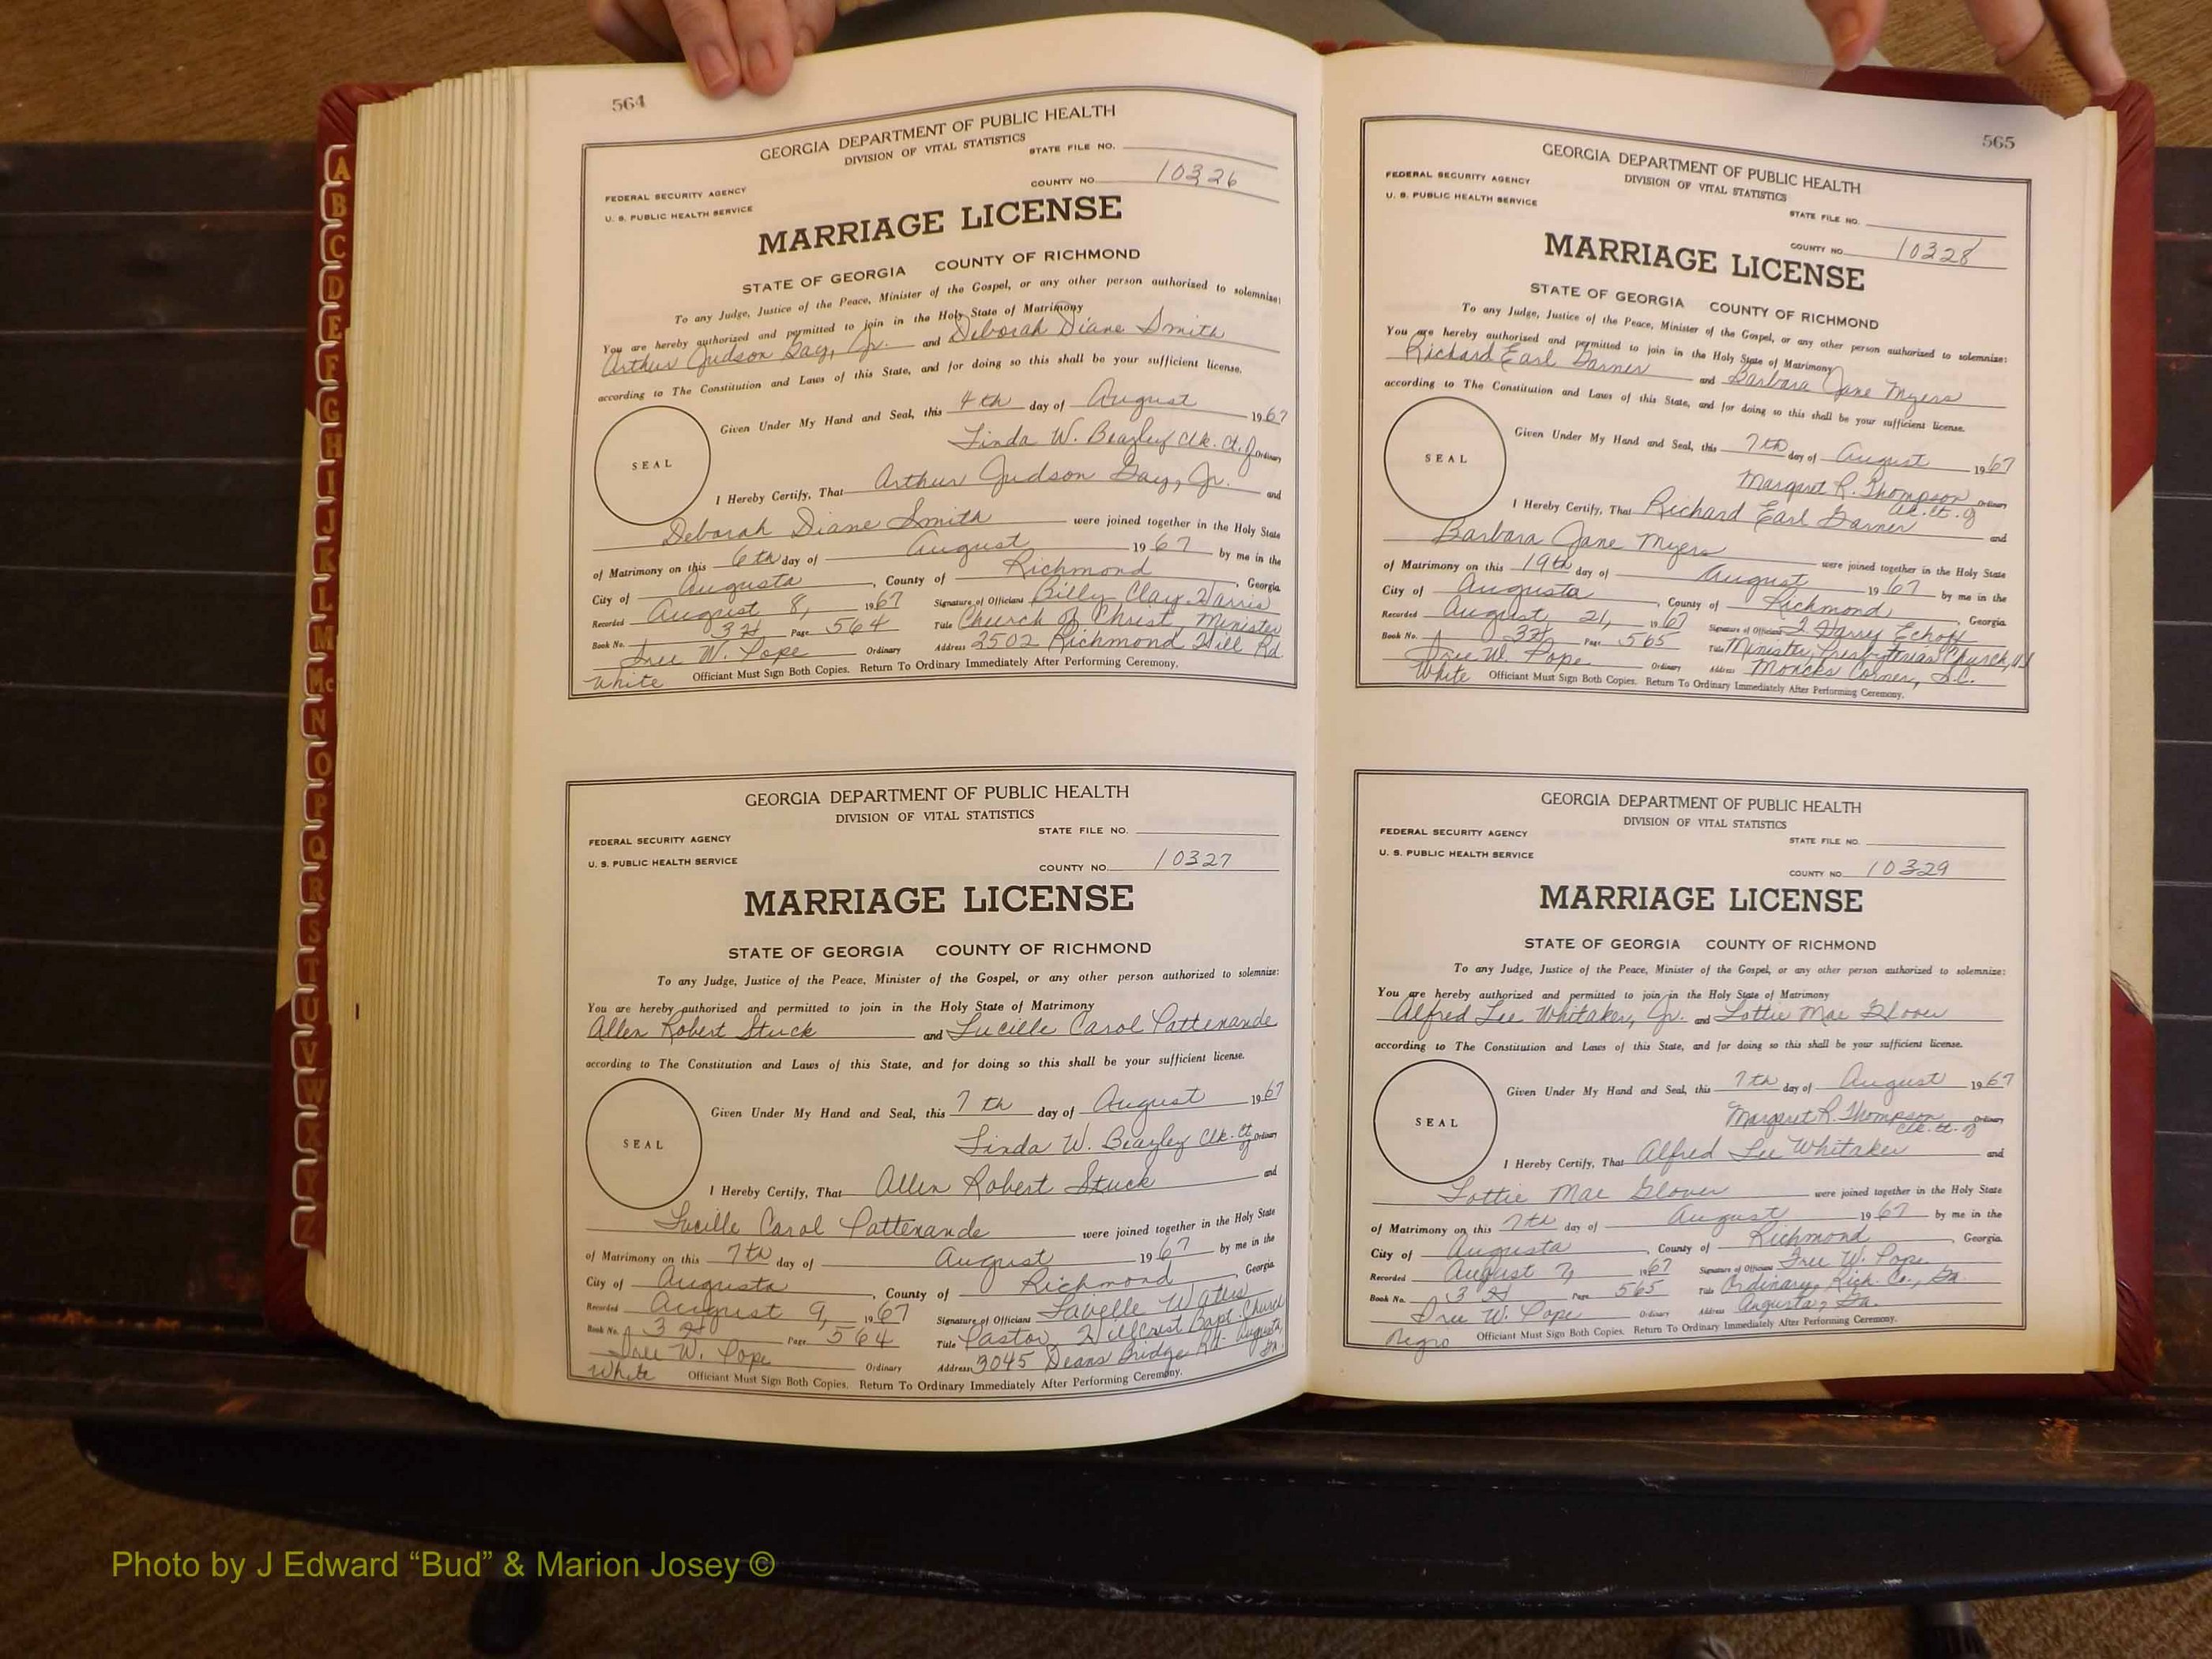 564
GEORGIA DEPARTMENT OF PUBLIC HEALTH
DIVISION OF VITAL STATISTICS
STATE FILE NO.
FEDERAL SECURITY AGENCY
U. S. PUBLIC HEALTH SERVICE
COUNTY NO. 10326
MARRIAGE LICENSE
STATE OF GEORGIA COUNTY OF RICHMOND
To any Judge, Justice of the Peace, Minister of the Gospel, or any other person authorized to solemnize:
You are hereby authorized and permitted to join in the Holy State of Matrimony
Arthur Judson Gay, Jr. and Deborah Diane Smith
according to The Constitution and Laws of this State, and for doing so this shall be your sufficient license.
Given Under My Hand and Seal, this 4th day of August 1967
Linda W. Beazley Clk. Ct. O Ordinary
SEAL
I Hereby Certify, That Arthur Judson Gay, Jr. and
Deborah Diane Smith were joined together in the Holy State
of Matrimony on this 6th day of August 1967 by me in the
City of Augusta, County of Richmond, Georgia
Recorded August 8, 1967 Signature of Officiant Billy Clay Harris
Book No. 3H Page 564 Title Church of Christ, Minister
Tree W. Pope Ordinary Address 2502 Richmond Hill Rd.
White Officiant Must Sign Both Copies. Return To Ordinary Immediately After Performing Ceremony.
GEORGIA DEPARTMENT OF PUBLIC HEALTH
DIVISION OF VITAL STATISTICS
STATE FILE NO.
FEDERAL SECURITY AGENCY
U. S. PUBLIC HEALTH SERVICE
COUNTY NO. 10327
MARRIAGE LICENSE
STATE OF GEORGIA COUNTY OF RICHMOND
To any Judge, Justice of the Peace, Minister of the Gospel, or any other person authorized to solemnize:
You are hereby authorized and permitted to join in the Holy State of Matrimony
Allen Robert Stuck and Lucille Carol Pattenande
according to The Constitution and Laws of this State, and for doing so this shall be your sufficient license.
Given Under My Hand and Seal, this 7th day of August 1967
Linda W. Beazley Clk. Ct. of Ordinary
SEAL
I Hereby Certify, That Allen Robert Stuck and
Lucille Carol Pattenande were joined together in the Holy State
of Matrimony on this 7th day of August 1967 by me in the
City of Augusta, County of Richmond, Georgia
Recorded August 9, 1967 Signature of Officiant Lavelle
Book No. 3H Page 564 Title Pastor, Hillcrest Bapt. Church
Tree W. Pope Ordinary Address 3045 Deans Bridge Rd. Augusta, Ga.
White Officiant Must Sign Both Copies. Return To Ordinary Immediately After Performing Ceremony.
565
GEORGIA DEPARTMENT OF PUBLIC HEALTH
DIVISION OF VITAL STATISTICS
FEDERAL SECURITY AGENCY
U. S. PUBLIC HEALTH SERVICE
STATE FILE NO.
COUNTY NO. 10328
MARRIAGE LICENSE
STATE OF GEORGIA COUNTY OF RICHMOND
To any Judge, Justice of the Peace, Minister of the Gospel, or any other person authorized to solemnize:
You are hereby authorized and permitted to join in the Holy State of Matrimony
Richard Earl Garner and Barbara Jane Myers
according to The Constitution and Laws of this State, and for doing so this shall be your sufficient license.
Given Under My Hand and Seal, this 7th day of August 1967
Margaret R. Thompson Ordinary
Clk. Ct. O
SEAL
I Hereby Certify, That Richard Earl Garner and
Barbara Jane Myers were joined together in the Holy State
of Matrimony on this 19th day of August 1967 by me in the
City of Augusta, County of Richmond, Georgia
Recorded August 21, 1967 Signature of Officiant Harry
Book No. 3H Page 565 Title Minister, Presbyterian Church,
Tree W. Pope Ordinary Address Moncks Corner, S.C.
White Officiant Must Sign Both Copies. Return To Ordinary Immediately After Performing Ceremony.
GEORGIA DEPARTMENT OF PUBLIC HEALTH
DIVISION OF VITAL STATISTICS
FEDERAL SECURITY AGENCY
STATE FILE NO.
U. S. PUBLIC HEALTH SERVICE
COUNTY NO. 10329
MARRIAGE LICENSE
STATE OF GEORGIA COUNTY OF RICHMOND
To any Judge, Justice of the Peace, Minister of the Gospel, or any other person authorized to solemnize:
You are hereby authorized and permitted to join in the Holy State of Matrimony
Alfred Lee Whitaker, Jr. and Lottie Mae Glover
according to The Constitution and Laws of this State, and for doing so this shall be your sufficient license.
Given Under My Hand and Seal, this 7th day of August 1967
Margaret R. Thompson Ordinary
Clk. Ct. O
SEAL
I Hereby Certify, That Alfred Lee Whitaker and
Lottie Mae Glover were joined together in the Holy State
of Matrimony on this 7th day of August 1967 by me in the
City of Augusta, County of Richmond, Georgia
Recorded August 7, 1967 Signature of Officiant Tree W. Pope
Book No. 3H Page 565 Title Ordinary, Rich. Co., Ga.
Tree W. Pope Ordinary Address Augusta, Ga.
Negro Officiant Must Sign Both Copies. Return To Ordinary Immediately After Performing Ceremony.
A
B
C
D
E
F
G
H
I
J
K
L
M
Mc
N
O
P
Q
R
S
T
U
V
W
X
Y
Z
Photo by J Edward “Bud” & Marion Josey ©